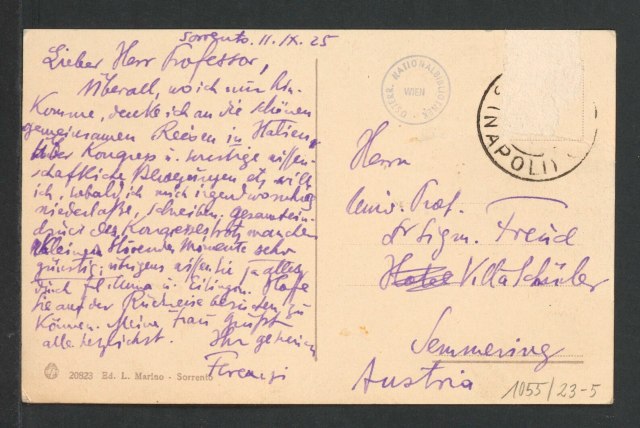 Sorrento. 11. IX. 25
Lieber Herr Professor,
Überall, wo ich nur hin-
komme, denke ich an die schönen
gemeinsamen Reisen in Italien.
Über Kongress u. sonstige wissen-
schaftliche Bewegungen etc. will
ich, sobald ich mich irgendwo ruhig
niederlaße, schreiben. Gesamtein-
druck des Kongresses trotz mancher
kleinen störenden Momente sehr
günstig; übrigens wissen Sie ja alles
durch Anna u. Eitingon. Hoffe
Sie auf der Rückreise besuchen zu
können. Meine Frau grüßt
alle herzlichst. Ihr getreuer
Ferenczi
20823 Ed. L. Marino - Sorrento
ÖSTERR. NATIONALBIBLIOTHEK
WIEN
(NAPOLI)
Herrn
Univ. Prof.
Dr Sigm. Freud
Villa Schüler
Semmering
Austria
1055/23-5